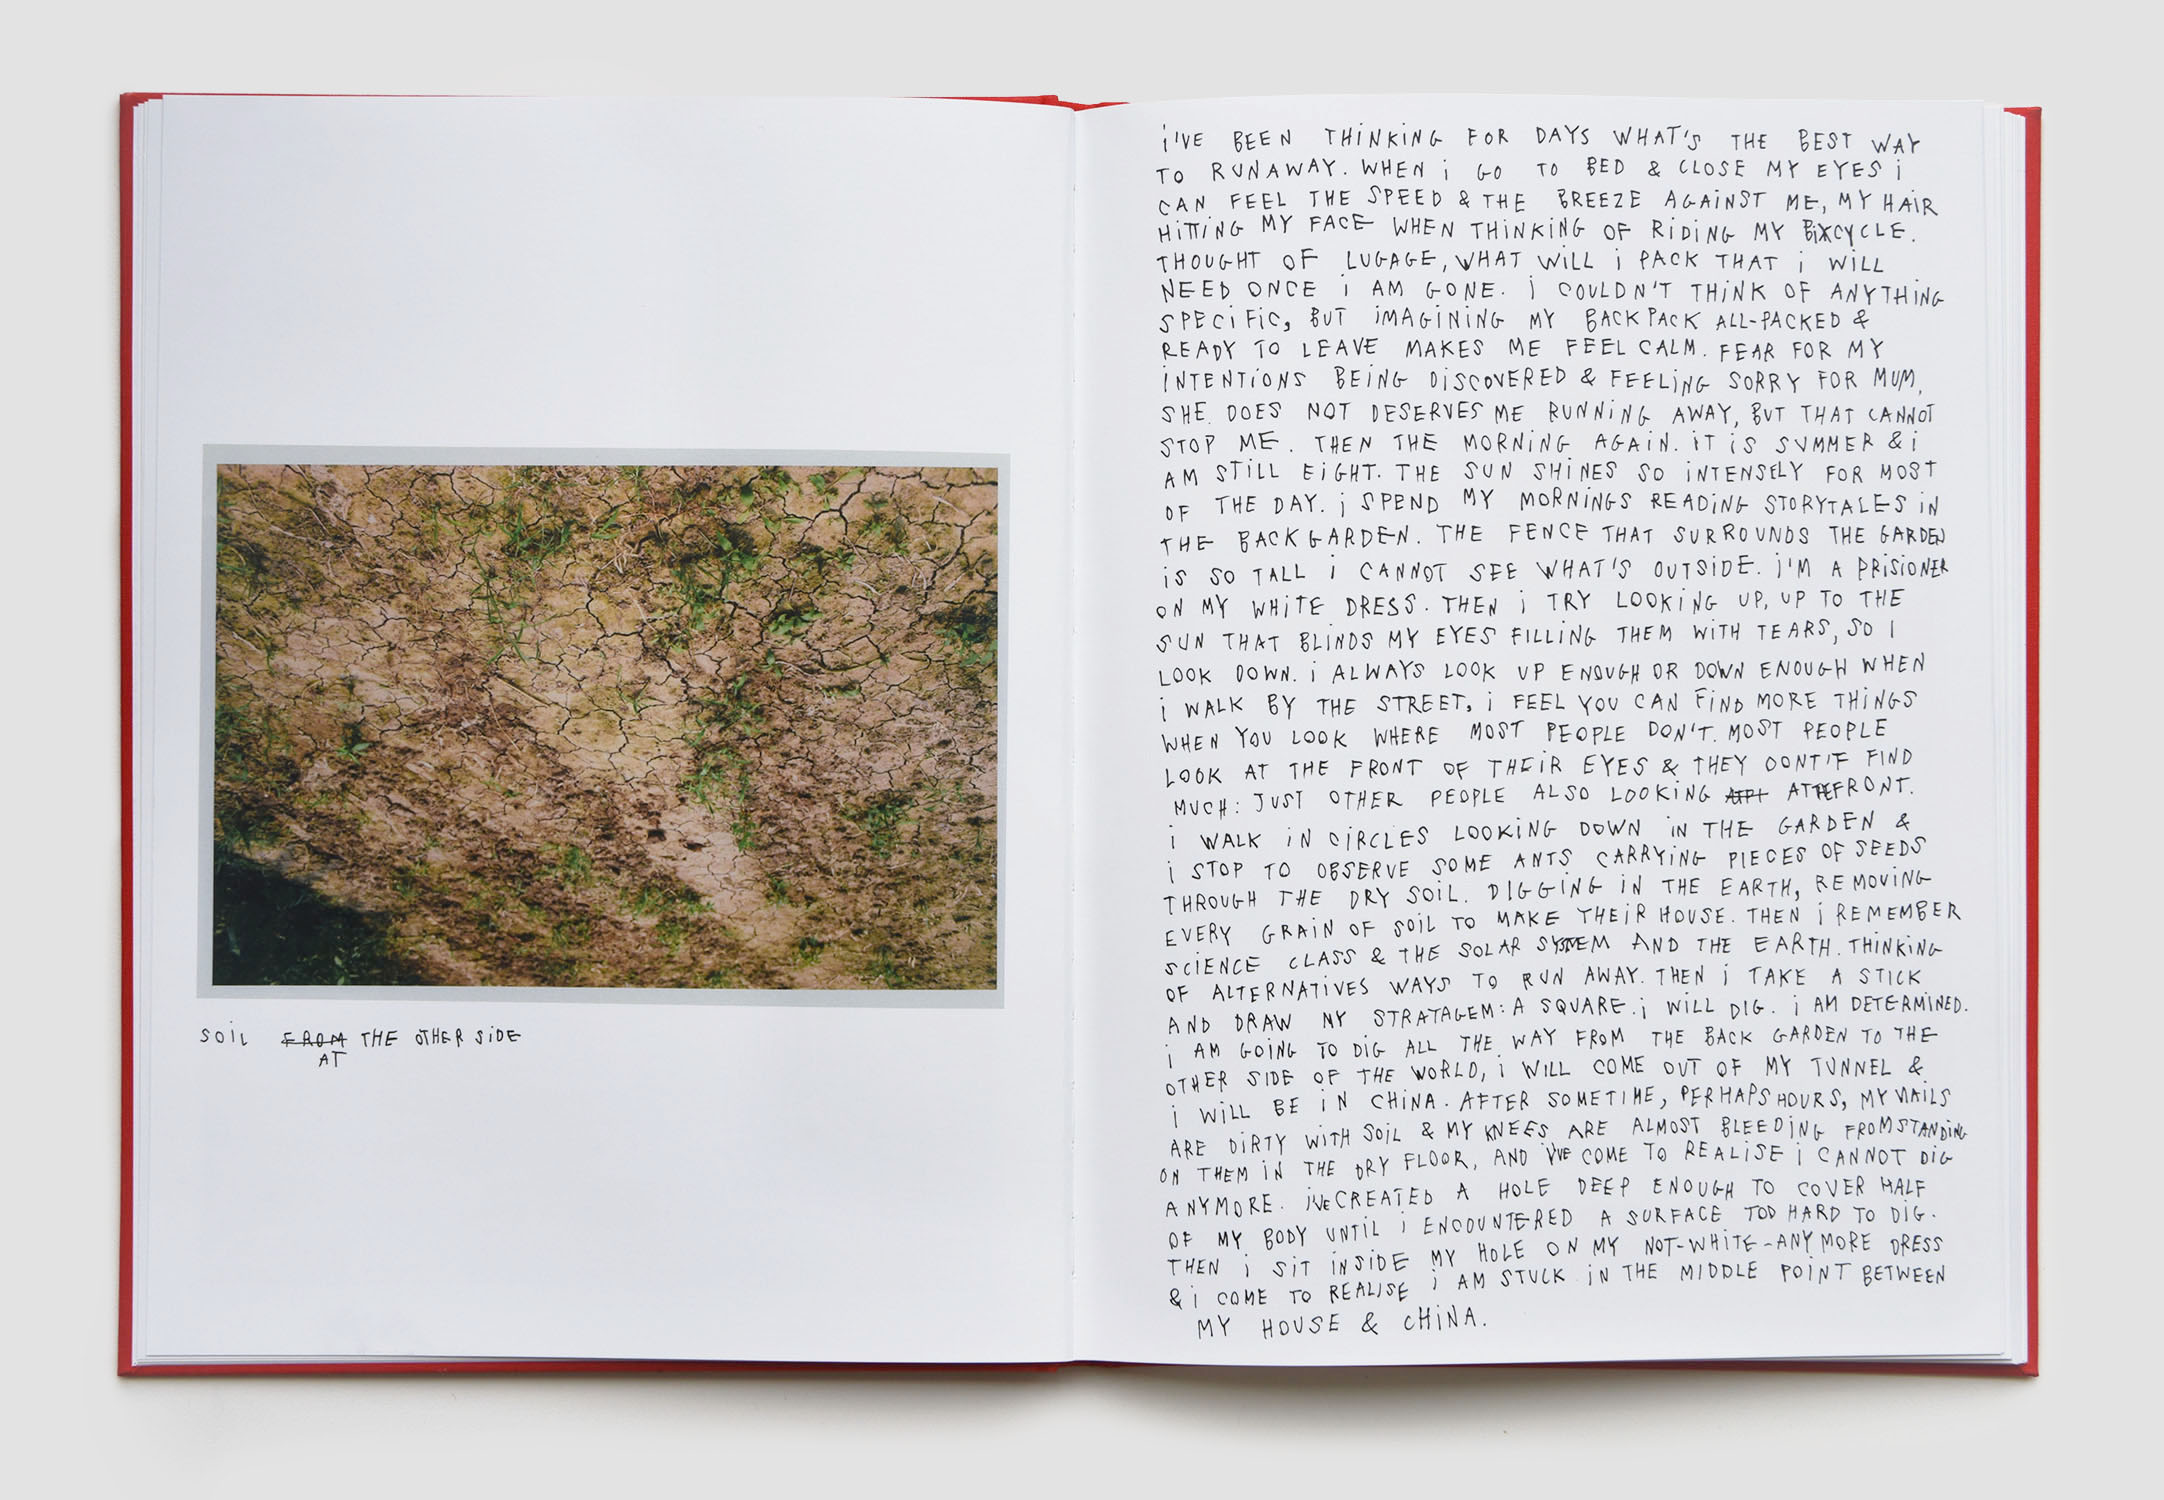 SOIL FROM THE OTHER SIDE
AT
i'VE BEEN THiNKiNG FOR DAYS WHAT'S THE BEST WAY
TO RUNAWAY. WHEN i GO TO BED & CLOSE MY EYES i
CAN FEEL THE SPEED & THE BREEZE AGAiNST ME, MY HAiR
HiTTiNG MY FACE WHEN THiNKiNG OF RiDiNG MY BiCYCLE.
THOUGHT OF LUGAGE, WHAT WiLL i PACK THAT i WiLL
NEED ONCE i AM GONE. i COULDN'T THiNK OF ANYTHiNG
SPECiFiC, BUT iMAGiNiNG MY BACKPACK ALL-PACKED &
READY TO LEAVE MAKES ME FEEL CALM. FEAR FOR MY
iNTENTiONS BEiNG DiSCOVERED & FEELiNG SORRY FOR MUM,
SHE DOES NOT DESERVES ME RUNNiNG AWAY, BUT THAT CANNOT
STOP ME. THEN THE MORNiNG AGAiN. iT iS SUMMER & i
AM STiLL EiGHT. THE SUN SHiNES SO iNTENSELY FOR MOST
OF THE DAY. i SPEND MY MORNiNGS READiNG STORYTALES iN
THE BACKGARDEN. THE FENCE THAT SURROUNDS THE GARDEN
iS SO TALL i CANNOT SEE WHAT'S OUTSiDE. i'M A PRiSiONER
ON MY WHiTE DRESS. THEN i TRY LOOKiNG UP, UP TO THE
SUN THAT BLiNDS MY EYES FiLLiNG THEM WiTH TEARS, SO I
LOOK DOWN. i ALWAYS LOOK UP ENOUGH OR DOWN ENOUGH WHEN
i WALK BY THE STREET, i FEEL YOU CAN FiND MORE THiNGS
WHEN YOU LOOK WHERE MOST PEOPLE DON'T. MOST PEOPLE
LOOK AT THE FRONT OF THEiR EYES & THEY DONT'T FiND
MUCH: JUST OTHER PEOPLE ALSO LOOKiNG AT THE FRONT.
i WALK iN CiRCLES LOOKiNG DOWN iN THE GARDEN &
i STOP TO OBSERVE SOME ANTS CARRYiNG PiECES OF SEEDS
THROUGH THE DRY SOiL. DiGGiNG iN THE EARTH, REMOViNG
EVERY GRAiN OF SOiL TO MAKE THEiR HOUSE. THEN i REMEMBER
SCiENCE CLASS & THE SOLAR SYSTEM AND THE EARTH. THiNKiNG
OF ALTERNATiVES WAYS TO RUN AWAY. THEN i TAKE A STiCK
AND DRAW MY STRATAGEM: A SQUARE. i WiLL DiG. i AM DETERMiNED.
i AM GOiNG TO DiG ALL THE WAY FROM THE BACK GARDEN TO THE
OTHER SiDE OF THE WORLD, i WiLL COME OUT OF MY TUNNEL &
i WiLL BE iN CHiNA. AFTER SOMETIME, PERHAPS HOURS, MY NAiLS
ARE DiRTY WiTH SOiL & MY KNEES ARE ALMOST BLEEDiNG FROM STANDiNG
ON THEM iN THE DRY FLOOR, AND i'VE COME TO REALiSE i CANNOT DiG
ANYMORE. i'VE CREATED A HOLE DEEP ENOUGH TO COVER HALF
OF MY BODY UNTiL i ENCOUNTERED A SURFACE TOO HARD TO DiG.
THEN i SiT iNSiDE MY HOLE ON MY NOT-WHiTE-ANYMORE DRESS
& i COME TO REALISE i AM STUCK iN THE MiDDLE POiNT BETWEEN
MY HOUSE & CHiNA.